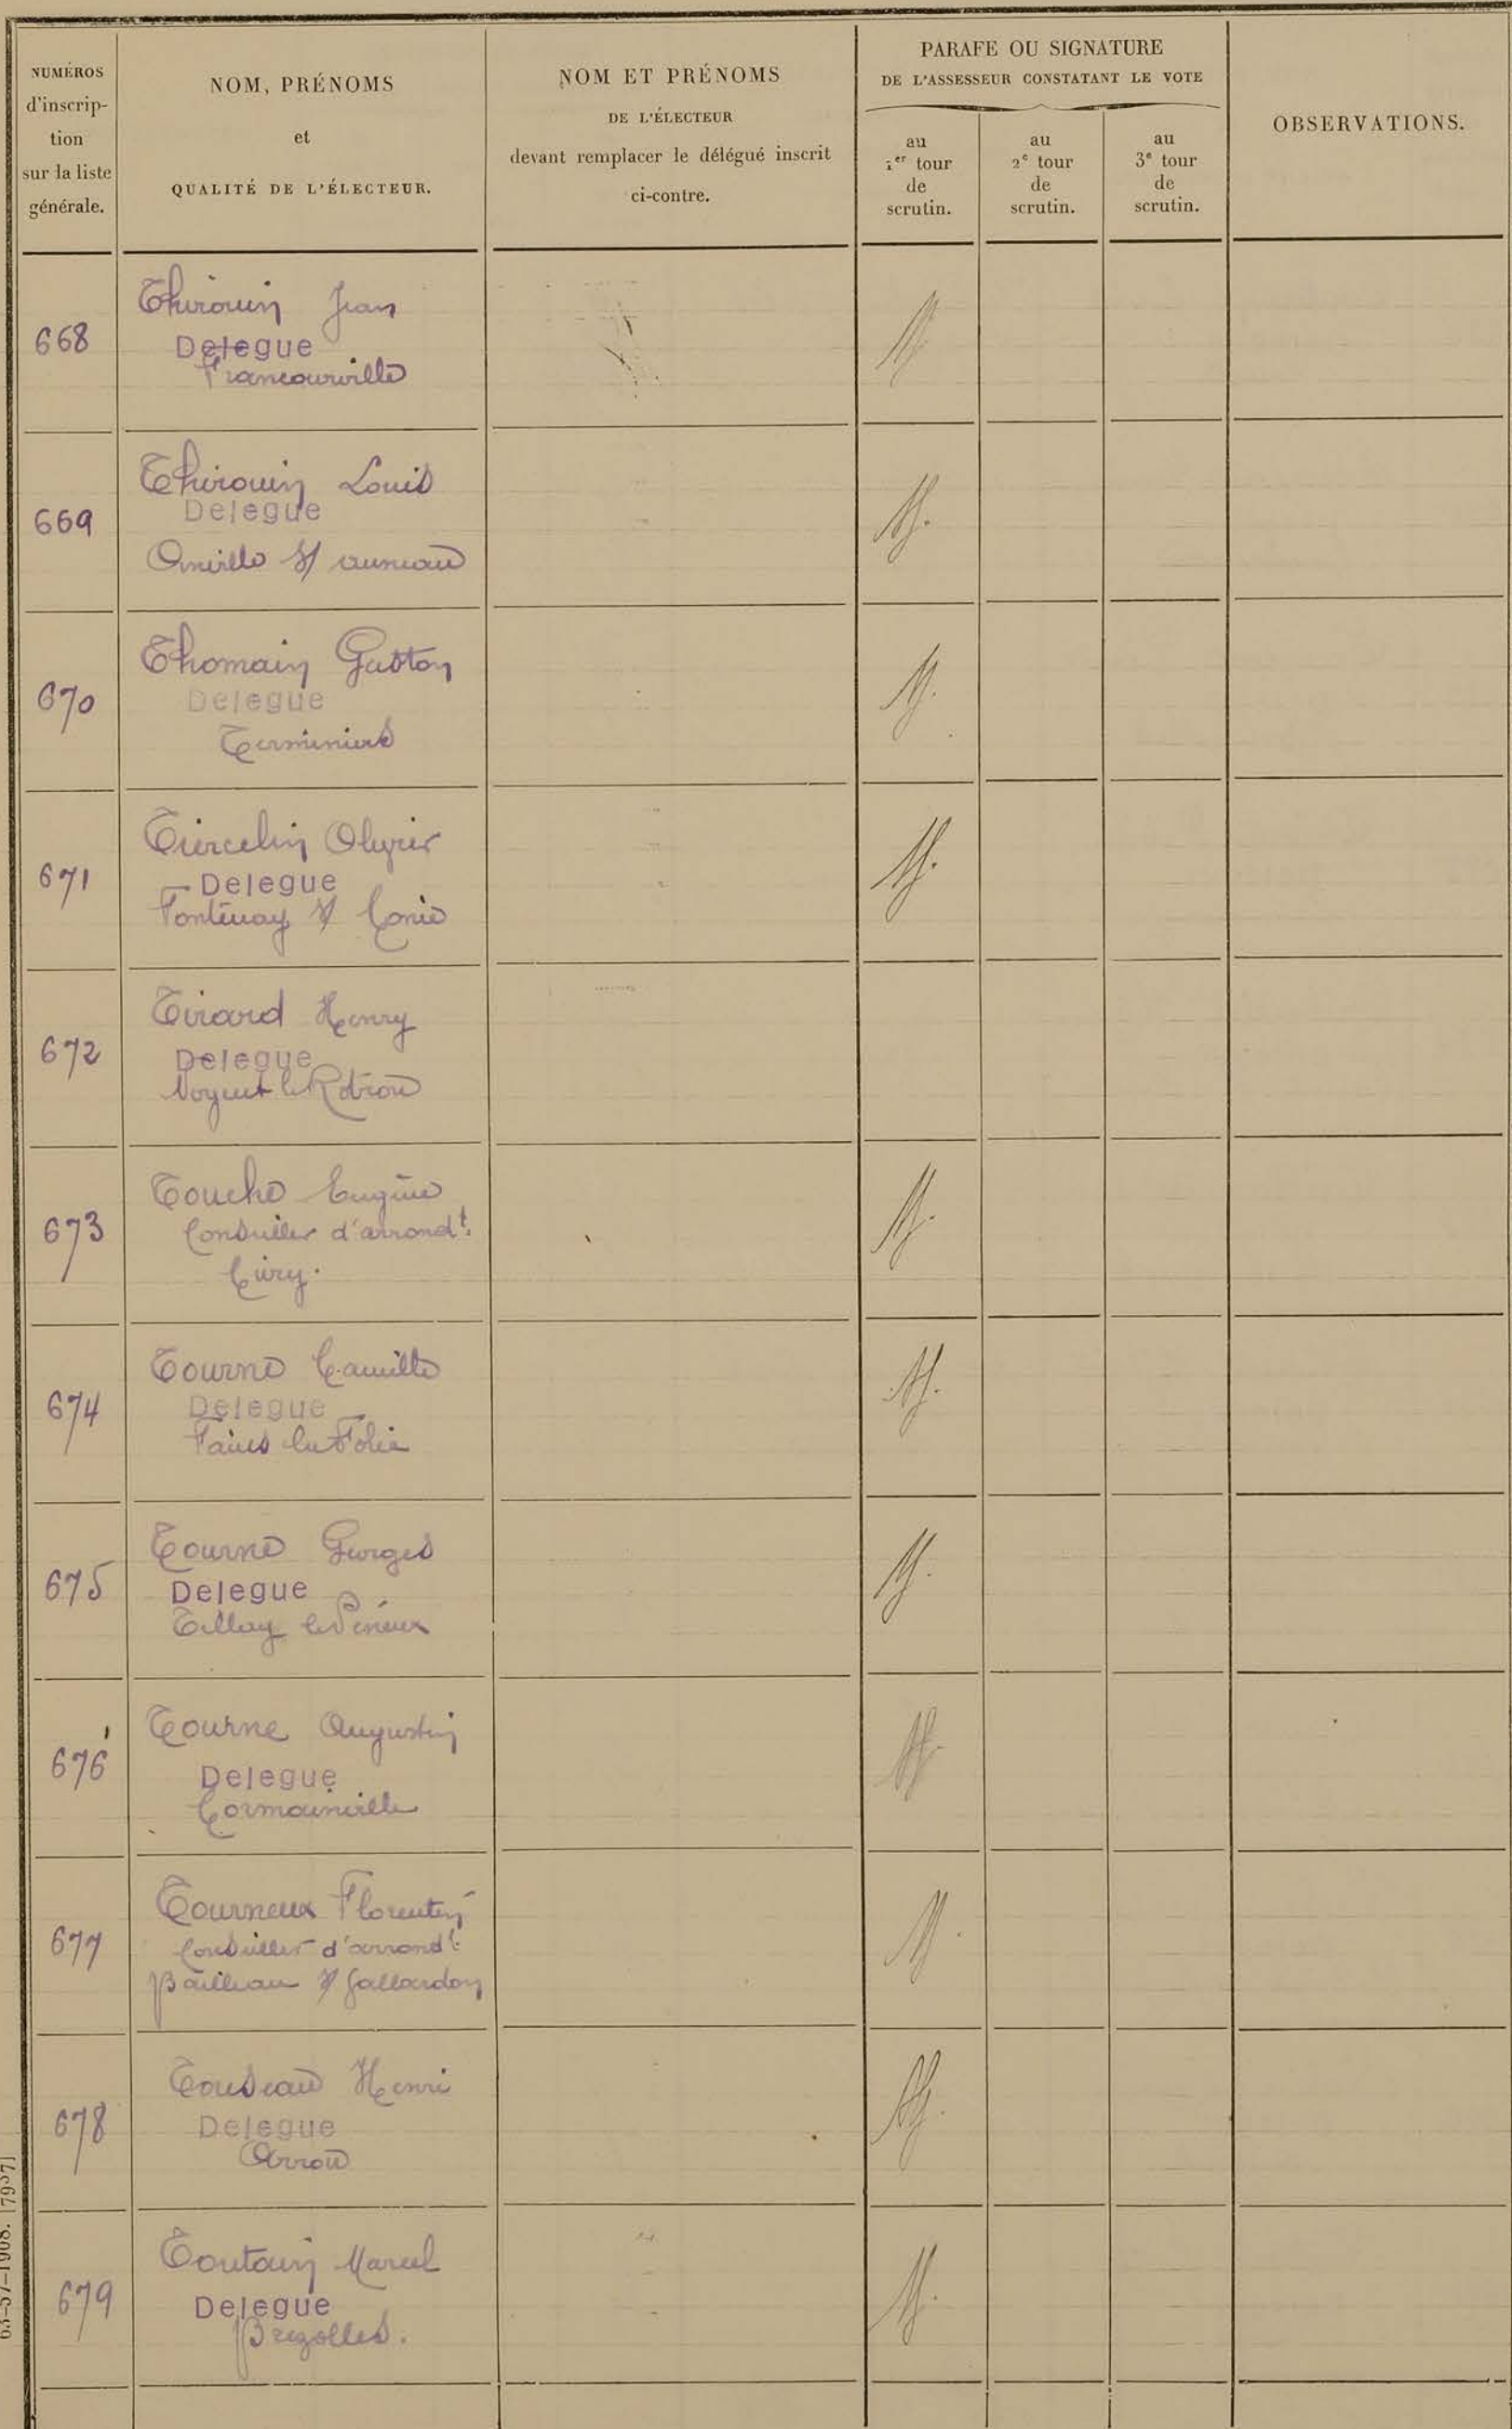 NUMÉROS
d'inscrip-
tion
sur la liste
générale.
NOM, PRÉNOMS
et
QUALITÉ DE L'ÉLECTEUR.
NOM ET PRÉNOMS
DE L'ÉLECTEUR
devant remplacer le délégué inscrit
ci-contre.
PARAFE OU SIGNATURE
DE L'ASSESSEUR CONSTATANT LE VOTE
au
1er tour
de
scrutin.
au
2e tour
de
scrutin.
au
3e tour
de
scrutin.
OBSERVATIONS.
668
Thirouin Jean
Delegue
Francourville
669
Thirouin Louis
Delegue
Oinville s/ auneau
670
Thomain Gaston
Delegue
Terminiers
671
Tiercelin
Delegue
Fontenay s/ Conie
672
Tirard Henry
Delegue
Nogent le Rotrou
673
Touche Eugène
Conseiller d'arrondt.
674
Tourne Camille
Delegue
Fains la Folie
675
Tourne Georges
Delegue
Tillay le Péneux
676
Tourne Augustin
Delegue
Cormainville
677
Tourneux Florentin
Conseiller d'arrondt.
Bailleau s/ Gallardon
678
Touseau Henri
Delegue
Arrou
679
Toutain Marcel
Delegue
Brezolles.